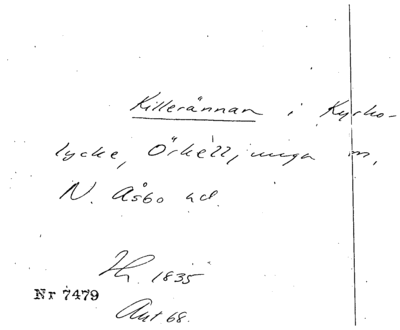 Killerännan i Kyrko-
lycke, Örkelljunga
N. Åsbo hd.
1835
Nr 7479
Ant 68.